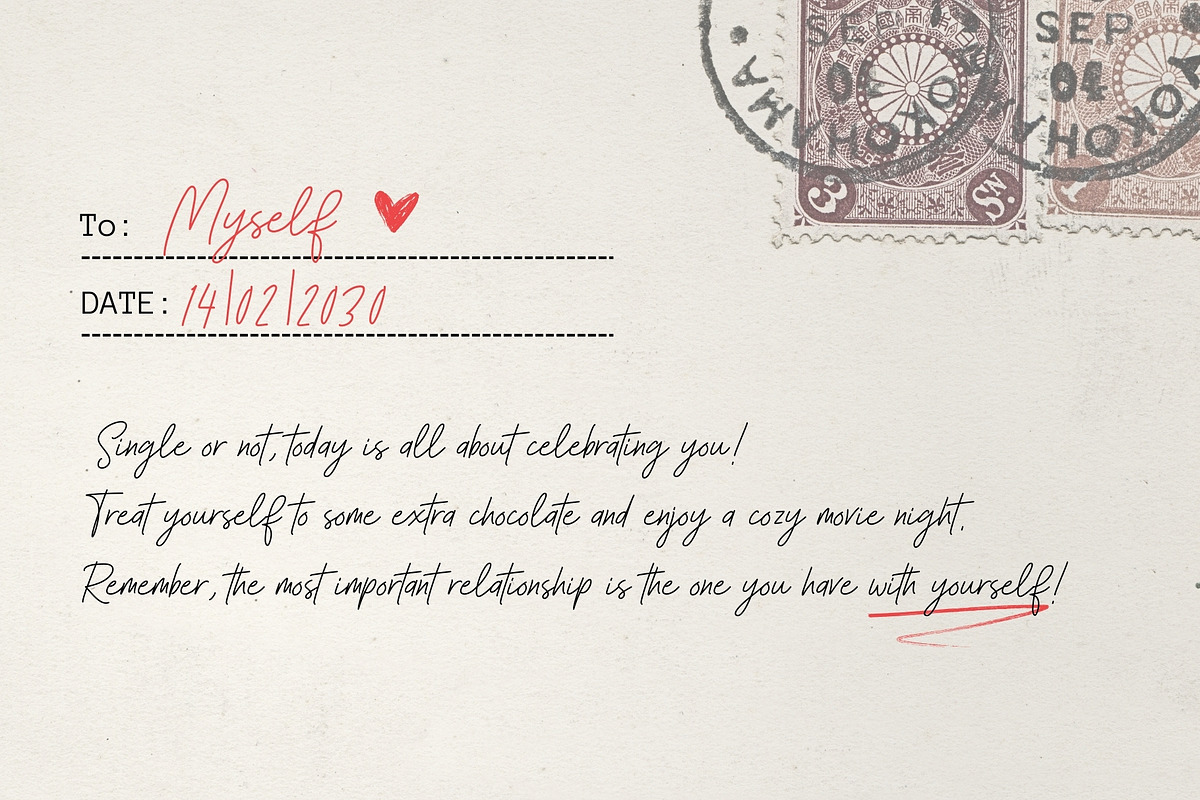 SEP
04
YOKOHAMA
SEP
04
YOKOHA
3 SN.
1
To: Myself
DATE: 14|02|2030
Single or not, today is all about celebrating you!
Treat yourself to some extra chocolate and enjoy a cozy movie night.
Remember, the most important relationship is the one you have with yourself!